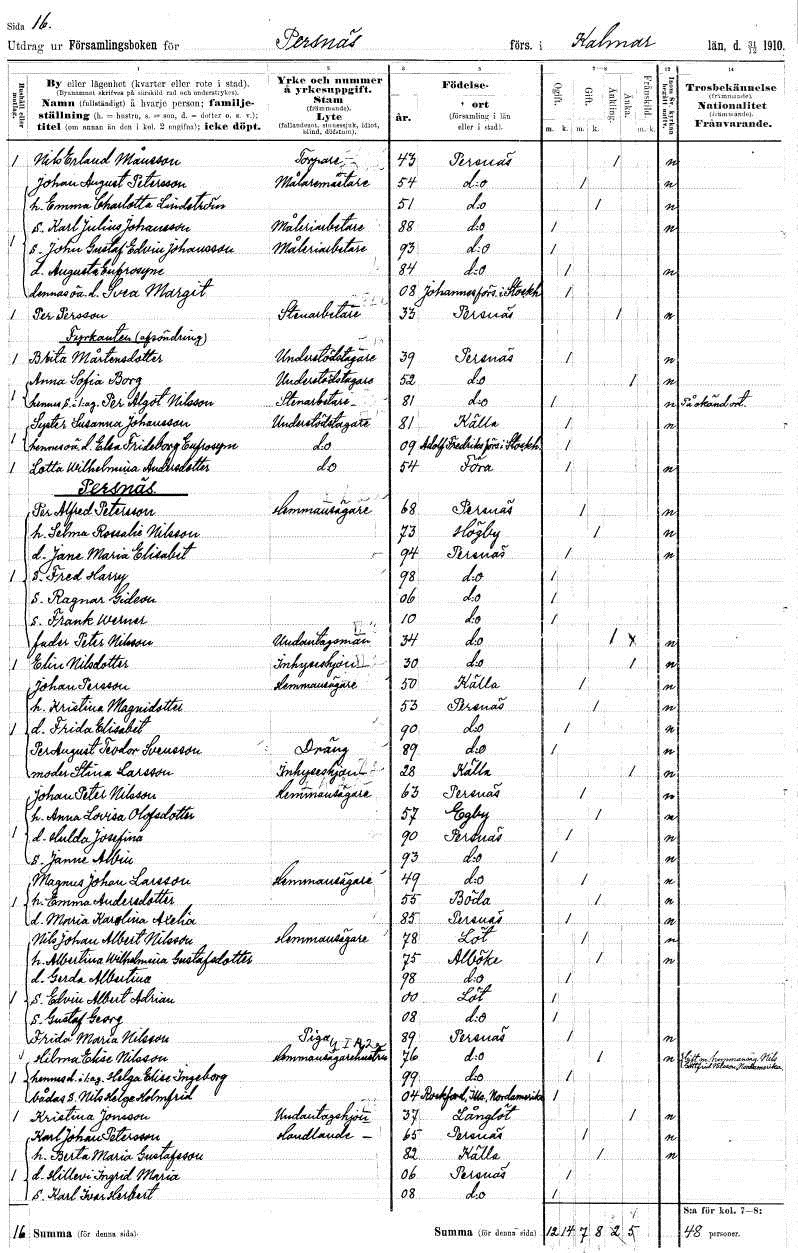 Sida 16.
Utdrag ur Församlingsboken för Persnäs förs. i Kalmar län, d. 31/12 1910.
1 2 3 4 7—8 13 14
Hushåll eller matlag.
By eller lägenhet (kvarter eller rote i stad).
(Bynamnet skrifves på särskild rad och understrykes).
Namn (fullständigt) å hvarje person; familje-
ställning (h. = hustru, s. = son, d. = dotter o. s. v.);
titel (om annan än den i kol. 2 angifna); icke döpt.
Yrke och nummer
å yrkesuppgift.
Stam
(främmande).
Lyte
(fallandesot, sinnessjuk, idiot,
blind, döfstum).
Födelse-
år. ort
(församling i län
eller i stad).
Ogift. Gift. Änkling. Änka. Frånskild.
m. k. m. k. m. k.
Inom Sv. kyrkan begått nattv.
Trosbekännelse
(främmande).
Nationalitet
(främmande).
Frånvarande.
1 Nils Erland Månsson Torpare 43 Persnäs / n
Johan August Petersson Målaremästare 54 d:o / n
h. Emma Charlotta Lindström 51 d:o / n
s. Karl Julius Johansson Måleriarbetare 88 d:o / n
1 s. John Gustaf Edvin Johansson Måleriarbetare 93 d:o /
d. Augusta Eufrosyne 84 d:o / n
dennas oä. d. Svea Margit 08 Johannes förs. i Stockh. /
1 Per Persson Stenarbetare 33 Persnäs / n
Fyrkanten (afsöndring)
1 Brita Mårtensdotter Understödstagare 39 Persnäs / n
Anna Sofia Borg Understödstagare 52 d:o / n
1 hennes s. i 1:ag. Per Algot Nilsson Stenarbetare 81 d:o / n På okänd ort.
Syster Susanna Johansson Understödstagare 81 Källa / n
1 hennes oä. d. Elsa Frideborg Eufrosyne d:o 09 Adolf Fredriks förs. i Stockh. /
1 Lotta Wilhelmina Andersdotter d:o 54 Föra / n
Persnäs.
Per Alfred Petersson Hemmansägare 68 Persnäs / n
h. Selma Rossalie Nilsson 73 Högby / n
d. Jane Maria Elisabet 94 Persnäs / n
1 s. Fred Harry 98 d:o /
s. Ragnar Gideon 06 d:o /
s. Frank Werner 10 d:o /
fader Peter Nilsson Undantagsman 34 d:o / x n
1 Elin Nilsdotter Inhyseshjon 30 d:o / n
Johan Persson Hemmansägare 50 Källa / n
h. Kristina Magnidotter 53 Persnäs / n
1 d. Frida Elisabet 90 d:o / n
Per August Teodor Svensson Dräng 89 d:o / n
moder Stina Larsson Inhyseshjon 28 Källa / n
Johan Peter Nilsson Hemmansägare 63 Persnäs / n
h. Anna Lovisa Olofsdotter 57 Egby / n
1 d. Hulda Josefina 90 Persnäs / n
s. Janne Albin 93 d:o / n
Magnus Johan Larsson Hemmansägare 49 d:o / n
1 h. Emma Andersdotter 55 Böda / n
d. Maria Karolina Axelia 85 Persnäs / n
Nils Johan Albert Nilsson Hemmansägare 78 Löt / n
h. Albertina Wilhelmina Gustafsdotter 75 Alböke / n
d. Gerda Albertina 98 d:o /
1 s. Edvin Albert Adrian 00 Löt /
s. Gustaf Georg 08 d:o /
Frida Maria Nilsson Piga 89 Persnäs / n
Hilma Elise Nilsson Hemmansägarehustru 76 d:o / n Gift m. hemmansäg. Nils Gottfrid Nilsson, Nordamerika
1 hennes d. i 1:ag. Helga Elise Ingeborg 99 d:o /
bådas s. Nils Helge Holmfrid 04 Rockford, Ills. Nordamerika /
1 Kristina Jonsson Undantagshjon 37 Långlöt / n
Karl Johan Petersson Handlande 65 Persnäs / n
h. Berta Maria Gustafsson 82 Källa / n
1 d. Hillevi Ingrid Maria 06 Persnäs /
s. Karl Ivar Herbert 08 d:o /
S:a för kol. 7—8:
16 Summa (för denna sida). Summa (för denna sida) 12 14 7 8 2 5 48 personer.